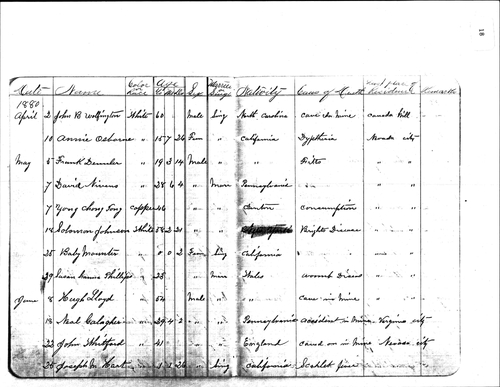 18
Date Name Color Race Age Yr Mo Ds Sex Married Single Nativity Cause of Death Last place of Residence Remarks
1880
April 2 John B Wolfington White 60 " Male Sing North Carolina cave in mine canada hill
10 Annie Osborne " 15 7 26 Fem " california Dyptheria Nevada city
May 5 Frank " 19 3 14 Male " " " Fits " "
7 David Nivens " 28 6 4 " Marr Pennsylvania " " "
7 Yong Chong copper 46 " " Canton consumption " "
14 Solomon Johnson White 58 2 21 " " Brights Disease " "
25 Baby " 0 0 2 Fem Sing california " " "
29 Susan Phillips " 23 " Marr Wales womb " "
June 8 Hugh Lloyd " 54 Male " " " cave in mine " "
13 Neal Galagher " 29 4 2 " " Pennsylvania accident in Mine Virginia city
22 John Whitford " 41 " " England caved on in Mine Nevada city
25 Joseph M Hart " 1 3 26 " Sing california Scarlet " "